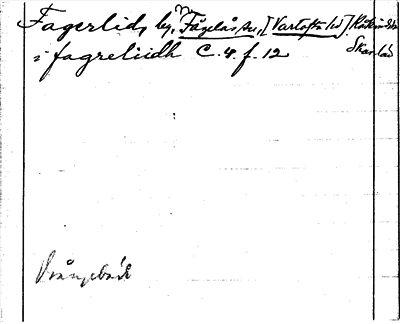 Fagerlid, by, N. Fågelås sn, [Vartofta hd]. Kåkinds hd
Skar. län
i fagreliidh C. 4. f. 12